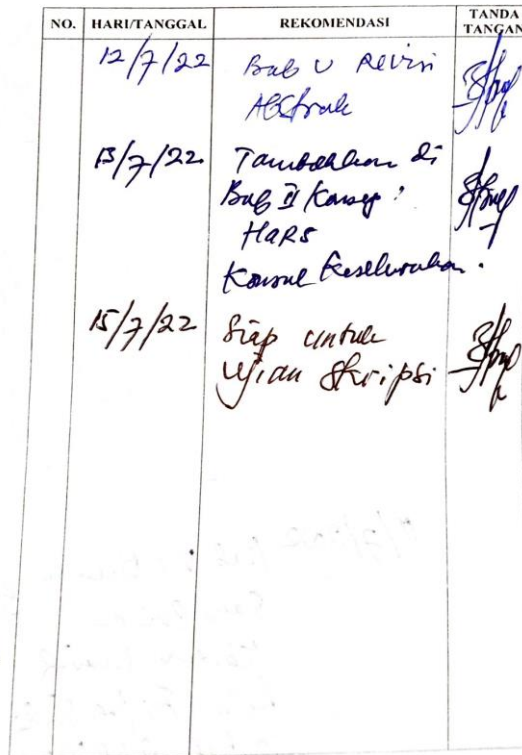 NO. HARI/TANGGAL REKOMENDASI TANDA TANGAN
12/7/22 Bab V Revisi
Abstrak
13/7/22 Tambahkan di
Bab II Konsep :
HARS
Konsul Keseluruhan .
15/7/22 Siap untuk
Ujian Skripsi